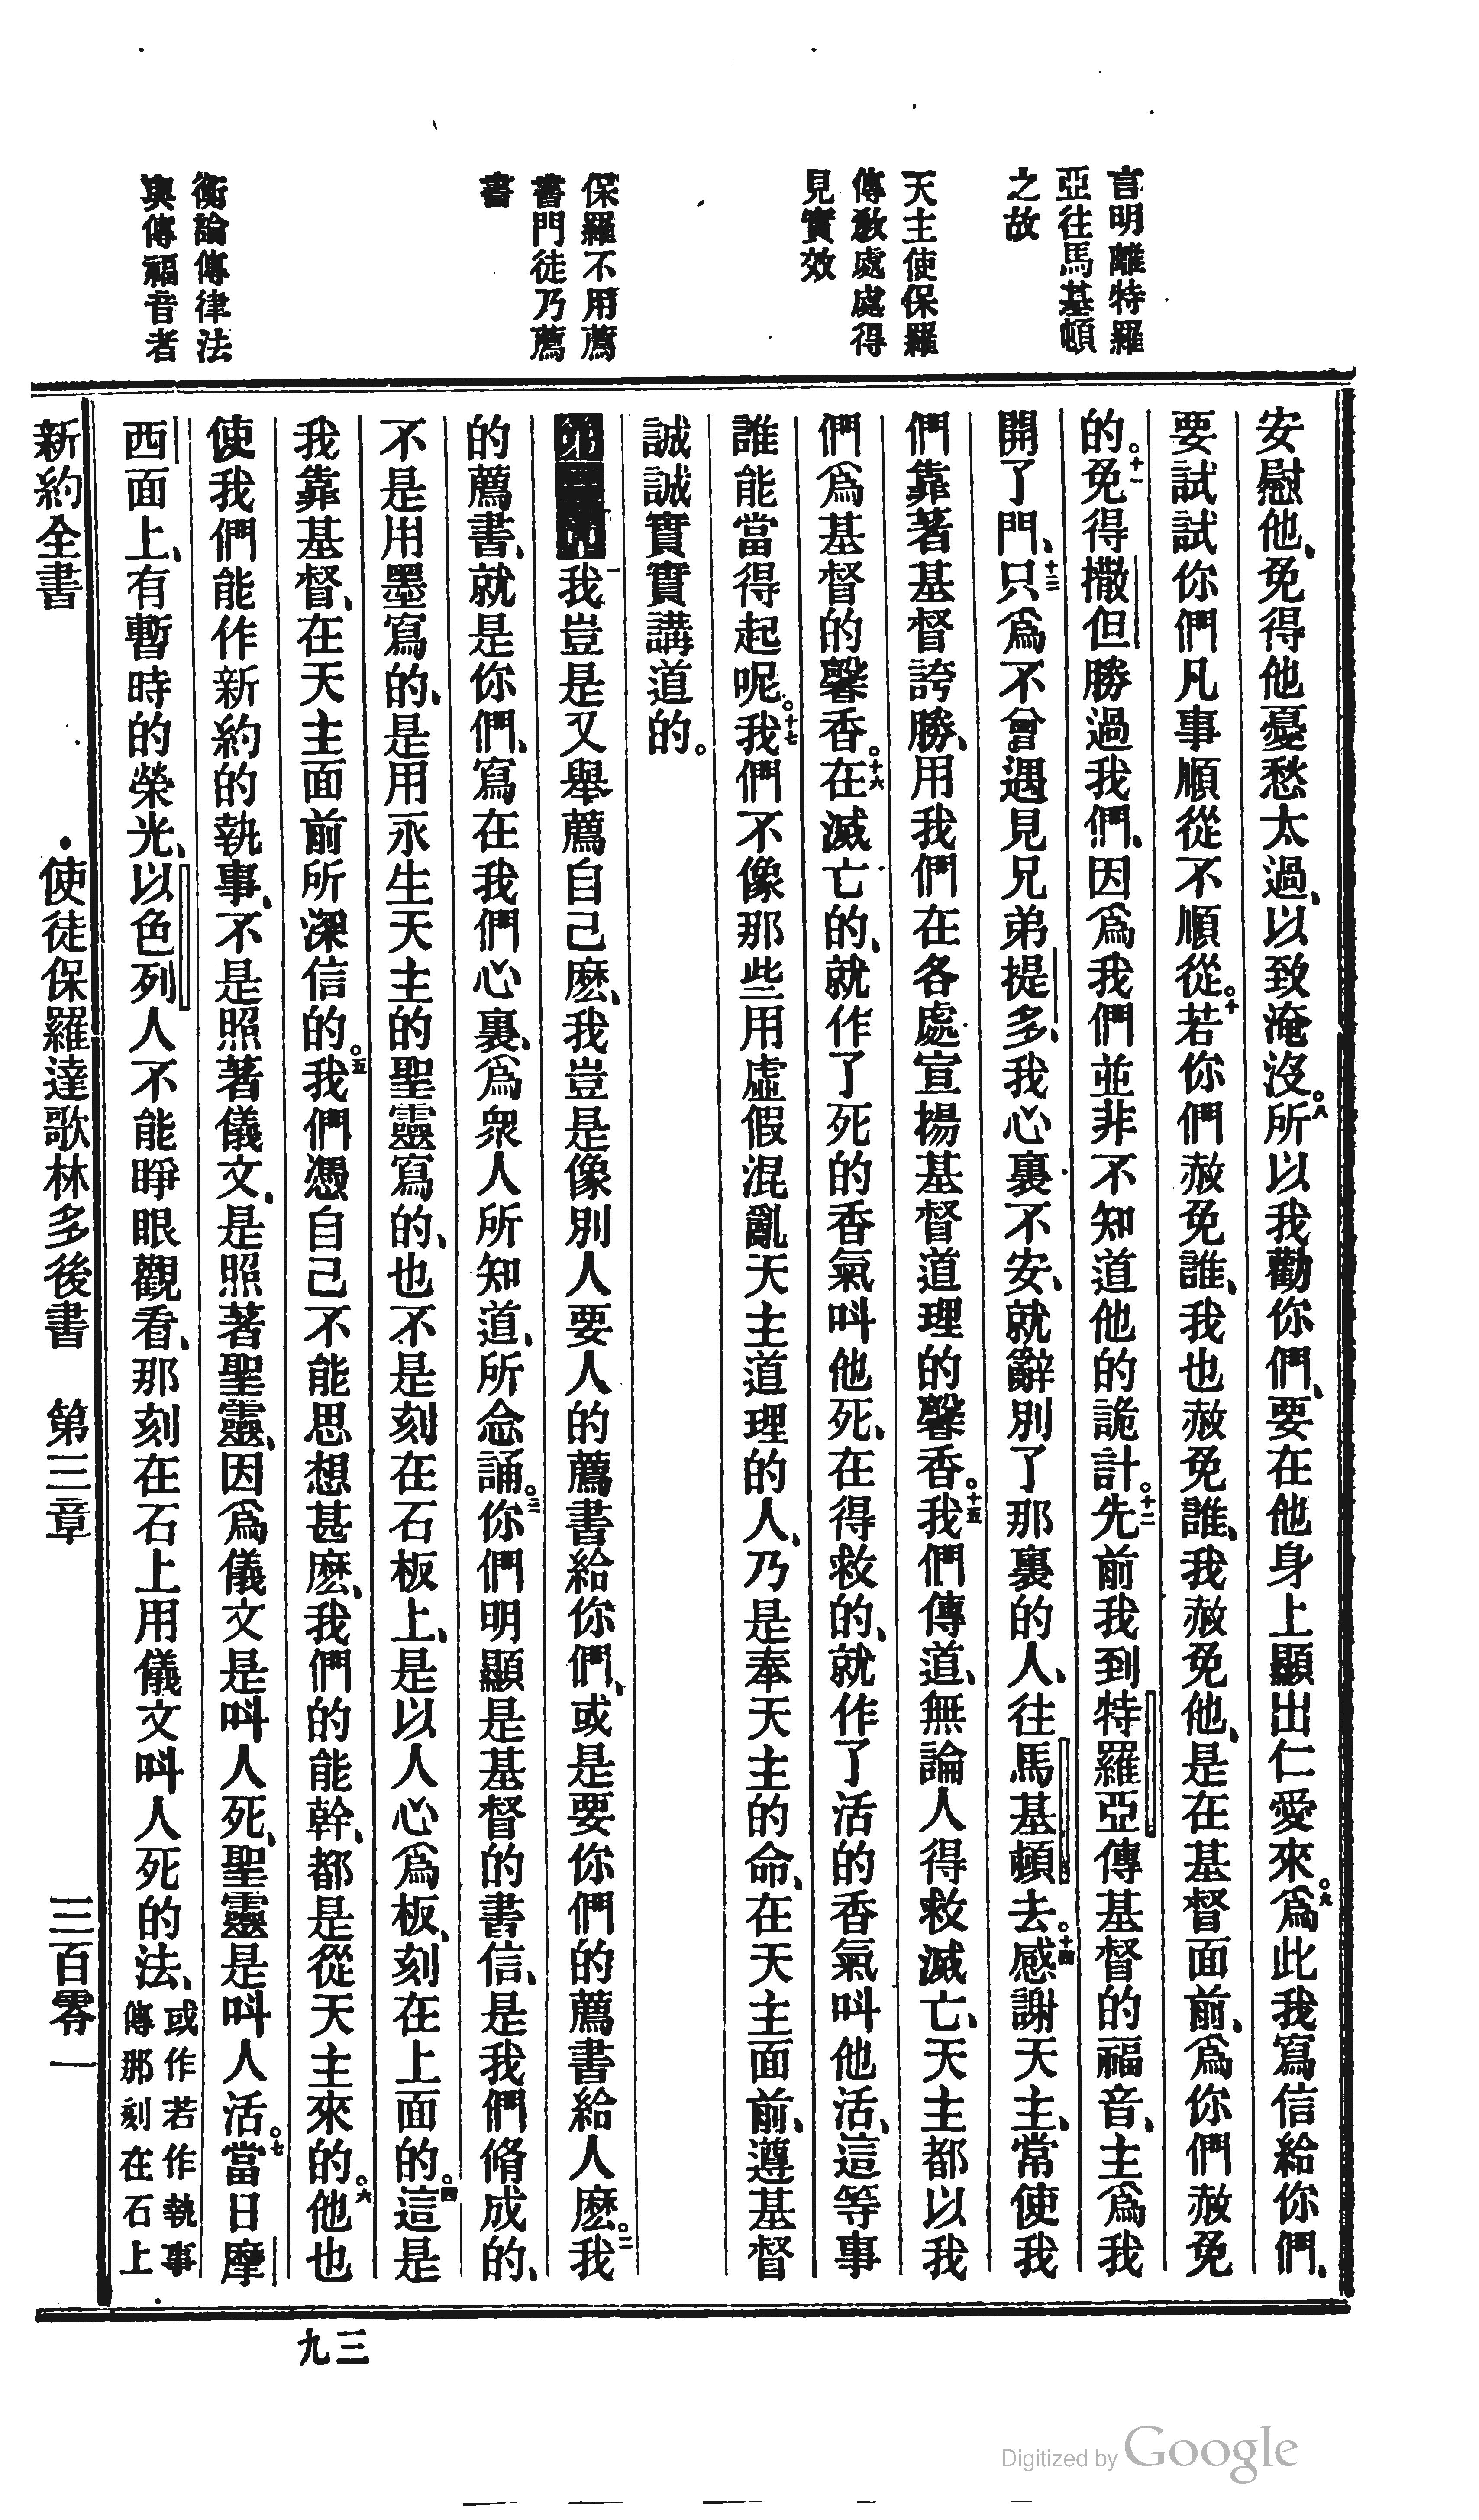 言明離特羅
亞往馬基頓
之故
天主使保羅
傳教處處得
見實效
保羅不用薦
書門徒乃薦
書
衡論傳律法
與傳福音者
安慰他、免得他憂愁太過、以致淹沒。八所以我勸你們、要在他身上顯出仁愛來。九爲此我寫信給你們、
要試試你們凡事順從不順從。十若你們赦免誰、我也赦免誰、我赦免他、是在基督面前、爲你們赦免
的。十一免得撒但勝過我們、因爲我們並非不知道他的詭計。十二先前我到特羅亞傳基督的福音、主爲我
開了門、十三只爲不曾遇見兄弟提多、我心裏不安、就辭別了那裏的人、往馬基頓去。十四感謝天主、常使我
們靠著基督誇勝、用我們在各處宣揚基督道理的馨香。十五我們傳道、無論人得救滅亡、天主都以我
們爲基督的馨香。十六在滅亡的、就作了死的香氣叫他死、在得救的、就作了活的香氣叫他活、這等事
誰能當得起呢。十七我們不像那些用虛假混亂天主道理的人、乃是奉天主的命、在天主面前、遵基督
誠誠實實講道的。
一我豈是又舉薦自己麽、我豈是像別人要人的薦書給你們、或是要你們的薦書給人麽。二我
的薦書、就是你們、寫在我們心裏、爲衆人所知道、所念誦。三你們明顯是基督的書信、是我們脩成的、
不是用墨寫的、是用永生天主的聖靈寫的、也不是刻在石板上、是以人心爲板、刻在上面的。四這是
我靠基督、在天主面前所深信的。五我們憑自己不能思想甚麽、我們的能幹、都是從天主來的。六他也
使我們能作新約的執事、不是照著儀文、是照著聖靈、因爲儀文是叫人死、聖靈是叫人活。七當日摩
西面上、有暫時的榮光、以色列人不能睜眼觀看、那刻在石上用儀文叫人死的法、或作若作執事
傳那刻在石上
新約全書 使徒保羅達歌林多後書 第三章 三百零一
三九
Digitized by Google